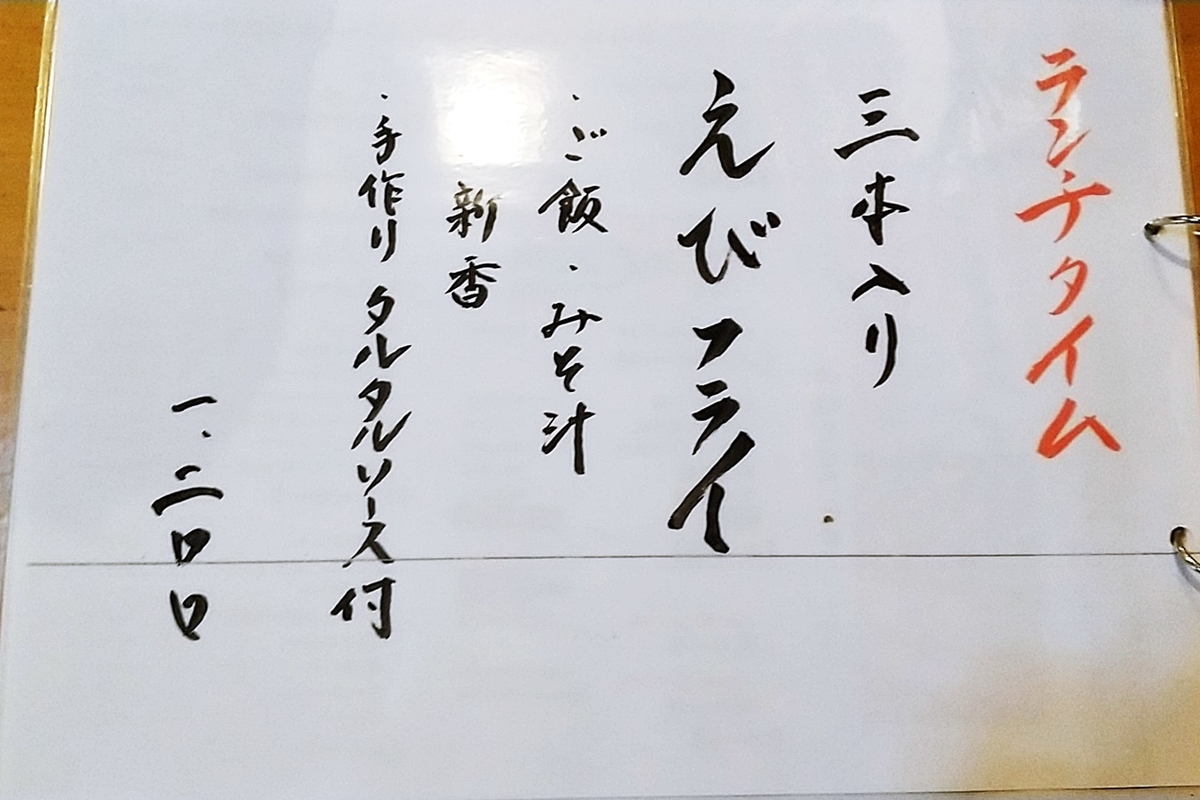 ランチタイム
三本入り
えびフライ
・ご飯・みそ汁
新香
・手作りタルタルソース付
一、二〇〇